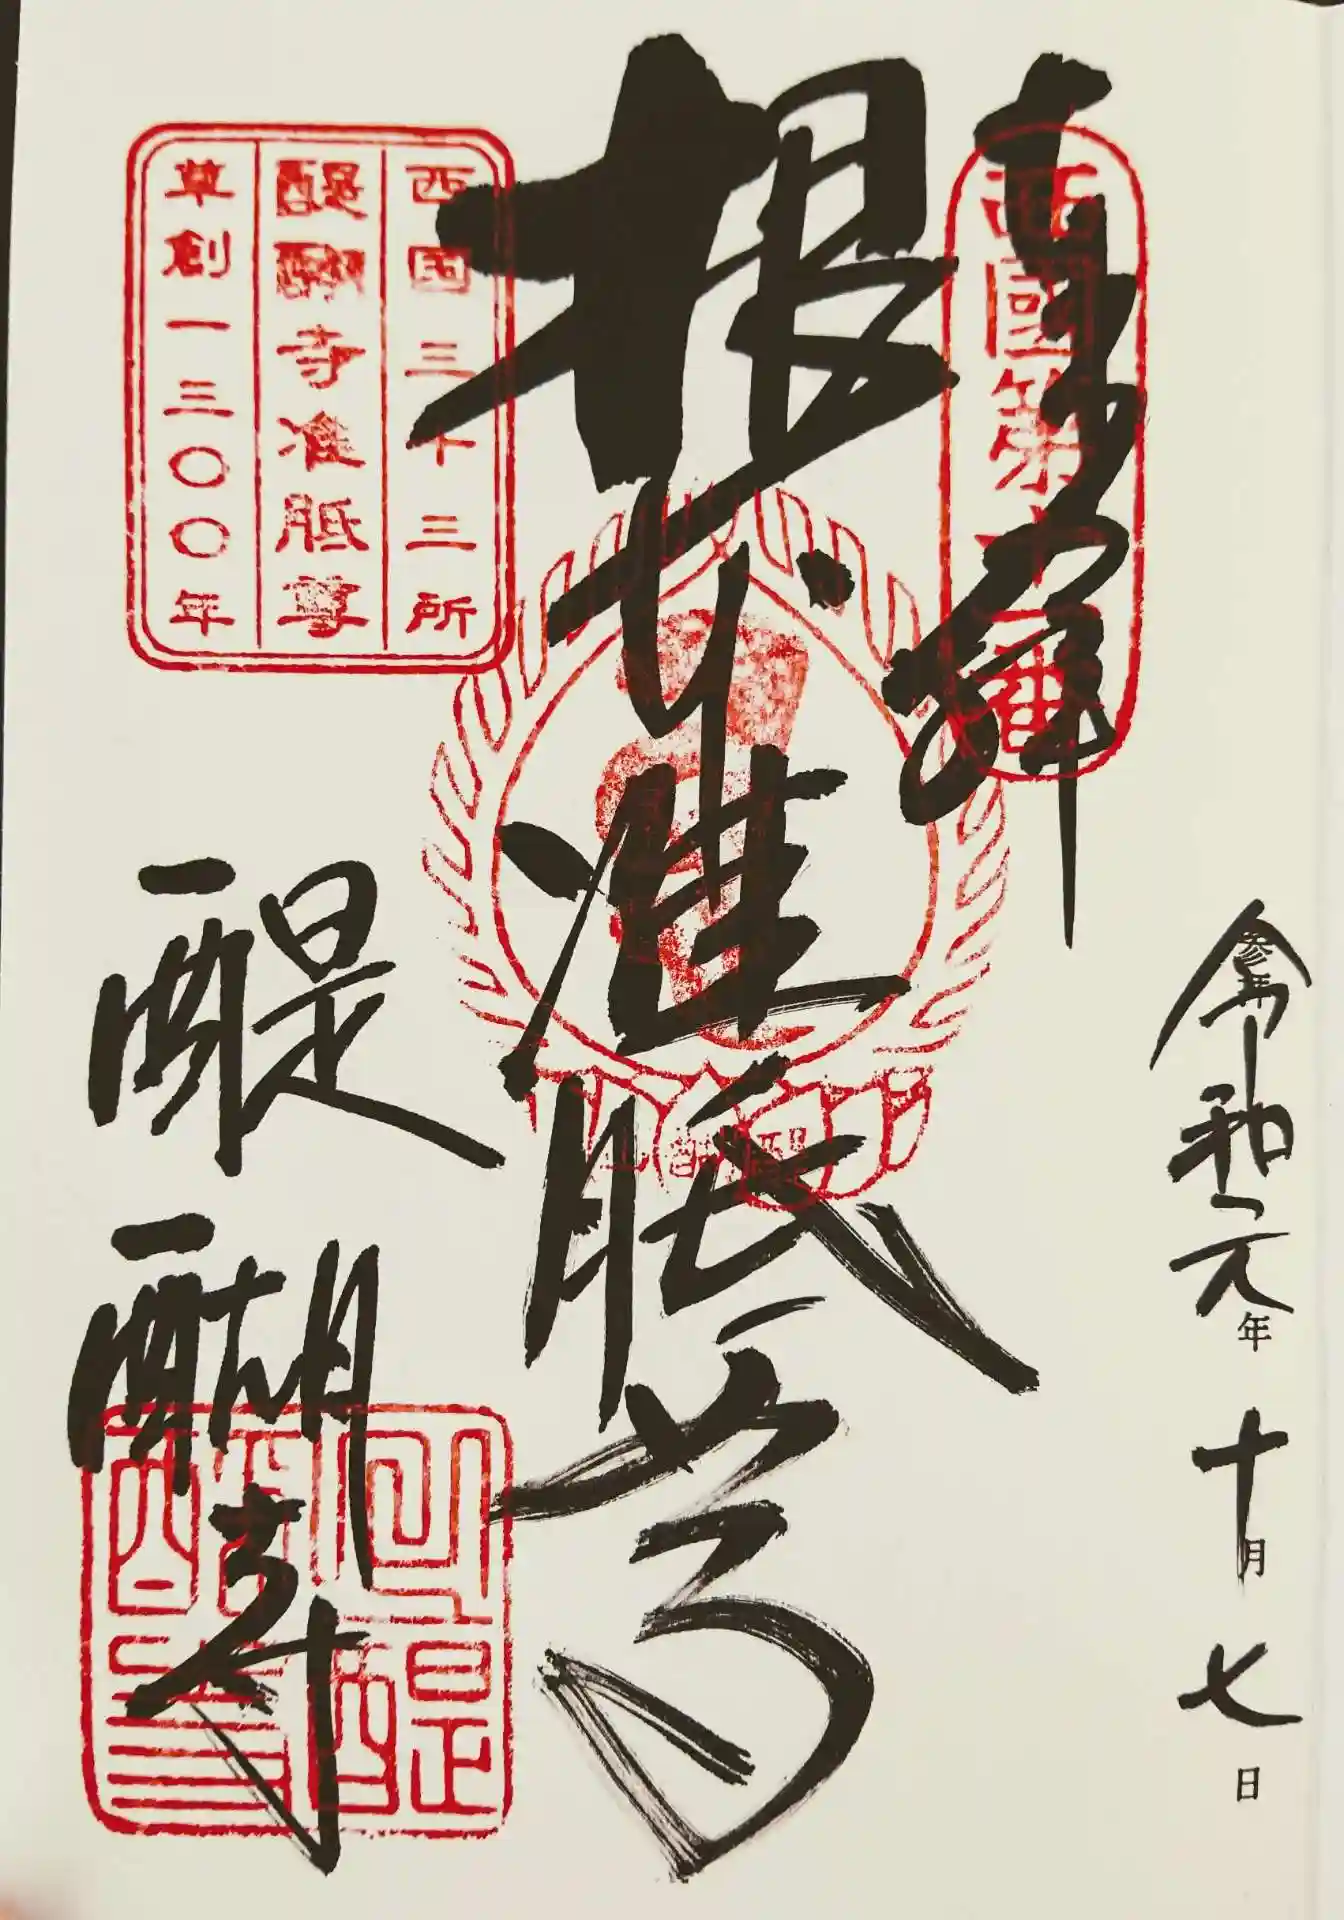 令和元年十月七日
奉拝
西國第十一番
根本准胝尊
醍醐
西国三十三所
醍醐寺准胝尊
草創一三〇〇年
醍醐寺